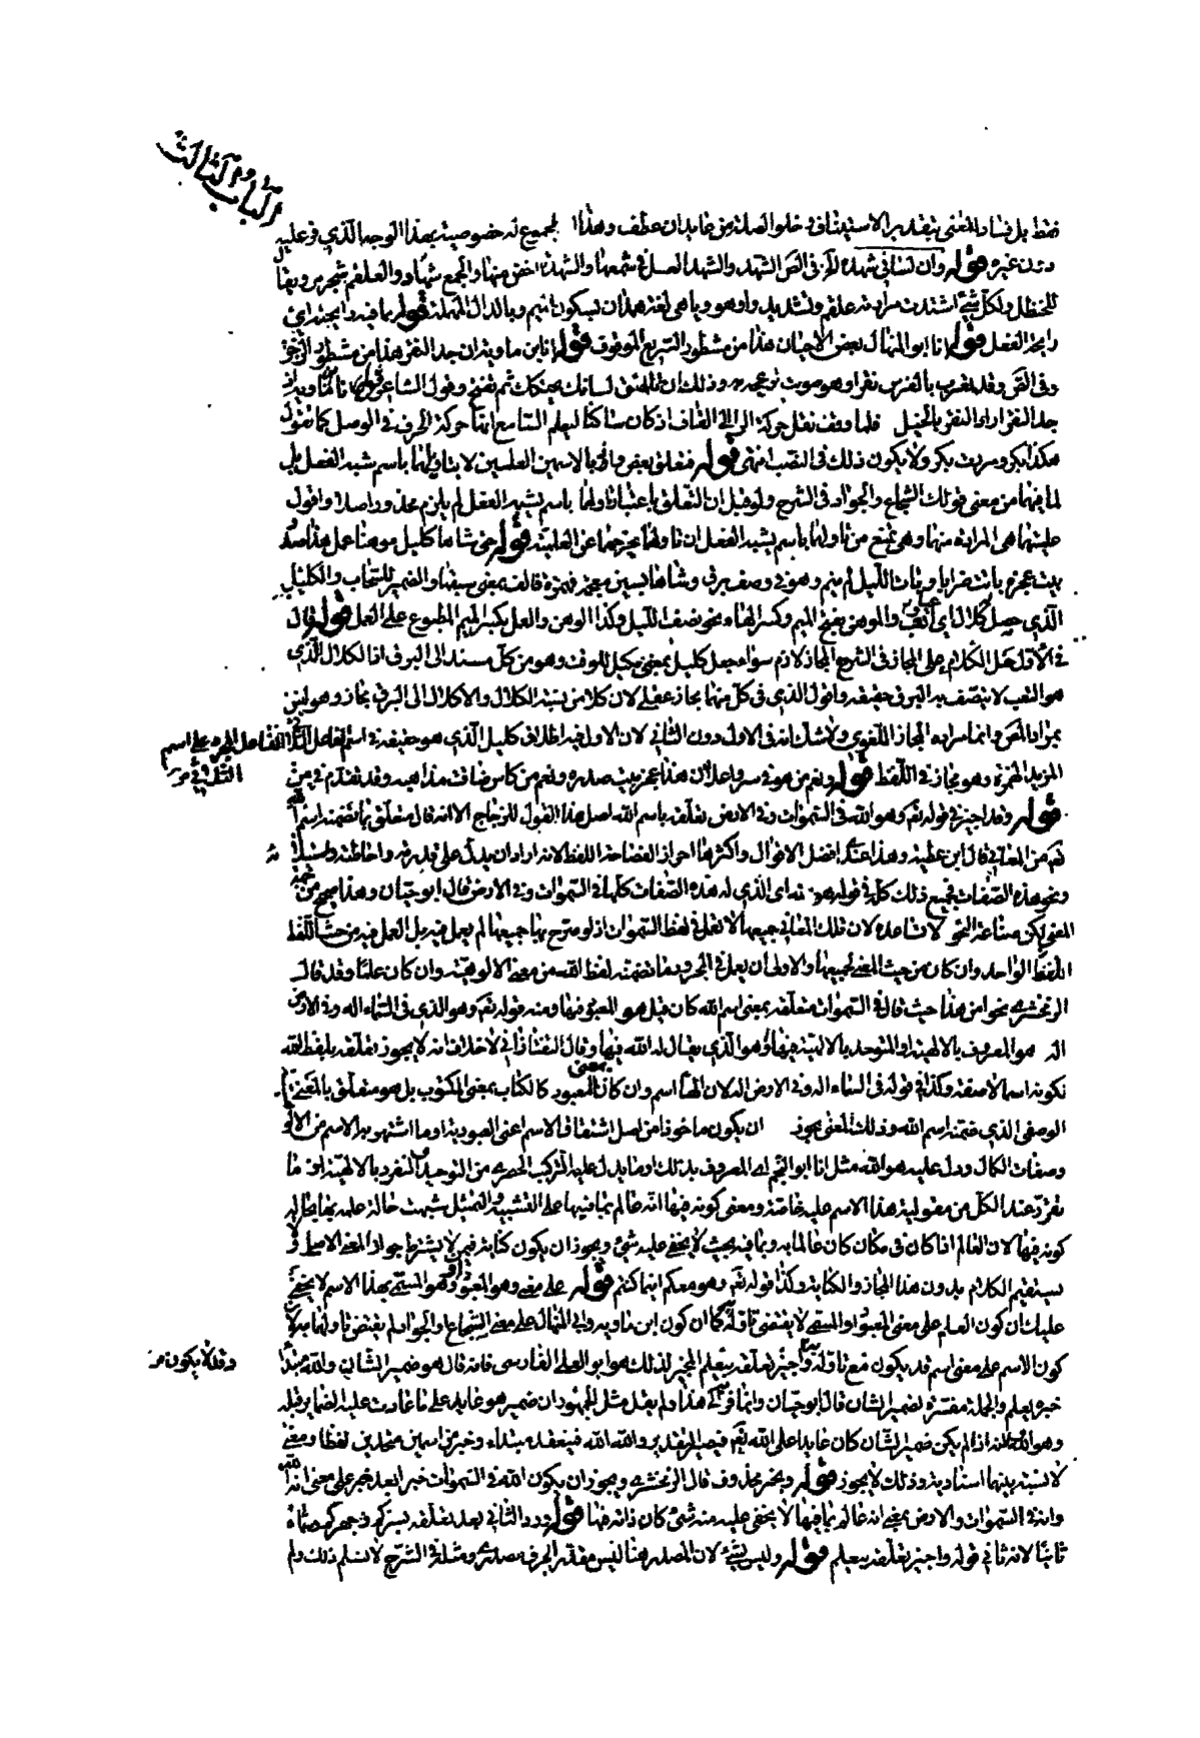 الباب الثالث
فقط بل فساد المعنى بتقدير الاستيناف وخلو الصلة من عايد ان عطف وهذا المجموع له خصوصية بهذا الوجه الذي فرع عليه
دون غيره قوله وان لساني شهدة الخ في الص الشهد والشهد العسل في شمعها والشهدة اخص منها والجمع شهاد والعلقم شجر مر ويقال
للحنظل ولكل شيء اشتدت مرارته علقم وتشديد واو هو وياء هي لغة همدان بسكون الميم وبالدال المهملة قوله بما فيه رايحة اي
رايحة الفعل قوله انا ابو المنهال بعض الاحيان هذا من مشطور السريع الموقوف قوله انا ابن ماوية ان جد النقر هذا من مشطور الرجز
وفي الص وقد نقر بالفرس نقرا وهو صوت يزعجه وذلك ان تلصق لسانك بحنكك ثم تفتح وقول الشاعر انا ابن ماوية اذ
جد النقر اراد النقر بالخيل فلما وقف نقل حركة الراء الى القاف اذ كان ساكنا ليعلم السامع انها حركة الحرف في الوصل كما تقول
هكذا بكر ومررت ببكر ولا يكون ذلك في النصب انتهى قوله فتعلق بعض والى بالاسمين العلمين لا بتاولهما باسم شبه الفعل بل
لما فيهما من معنى قولك الشجاع والجواد في الشرح ولو قيل ان التعلق باعتبار تاولهما باسم يشبه الفعل لم يلزم محذور اصلا واقول
علميتهما هي المرادة منهما وهي تمنع من تاولهما باسم يشبه الفعل ان تاولهما يخرجهما عن العلمية قوله حتى شاها كليل موهنا عمل هذا صدر
بيت عجزه باتت طرابا وبات الليل لم ينم وهو في وصف برق وشاها بشين معجمة فهمزة فالف بمعنى سبقها والضمير للسحاب والكليل
الذي حصل كلال اي تعب والموهن بفتح الميم وكسر الهاء نحو نصف الليل وكذا الوهن والعمل بكسر الميم المطبوع على العمل قوله قال
في الاول حمل الكلام على المجاز في الشرح المجاز لازم سواء جعل كليل بمعنى مكل للوقت وهو من كل مسند الى البرق اذ الكلال الذي
هو التعب لا يتصف به البرق حقيقة واقول الذي في كل منهما مجاز عقلي لان كلا من نسبة الكلال والاكلال الى البرق مجاز وهو ليس
بمراد المص وانما مراده المجاز اللغوي ولا شك انه في الاول دون الثاني لان الاول فيه اطلاق كليل الذي هو حقيقة في اسم الفاعل
المزيد الهمزة وهو مجاز في اللفظ قوله ونعم من هو في سر واعلان هذا عجز بيت صدره ونعم من كاس ضاقت مذاهبه وقد تقدم في من
قوله وقد اجيز في قوله تعالى وهو الله في السموات وفي الارض تعلقه باسم الله اصل هذا القول للزجاج الا انه قال متعلق بما تضمنه اسم الله
تعالى من المعاني قال ابن عطية وهذا عندي افضل الاقوال واكثرها احرازا لفصاحة اللفظ لانه اراد ان يدل على قدرته واحاطته واستيلائه
ونحو هذه الصفات فجمع ذلك كله في قوله وهو الله اي الذي له هذه الصفات كلها في السموات وفي الارض قال ابو حيان وهذا صحيح من جهة
المعنى لكن صناعة النحو لا تساعده لان تلك المعاني جميعها لا تعمل في لفظ السموات اذ لو صرح بها جميعها لم يعمل فيه بل العمل فيه من حيث اللفظ
اللفظ الواحد وان كان من حيث المعنى لجميعها والاولى ان يعمل في المجرور ما تضمنه لفظ الله من معنى الالوهية وان كان علما وقد قال
الزمخشري نحوا من هذا حيث قال في السموات متعلقة بمعنى اسم الله كان قيل هو المعبود فيها ومنه قوله تعالى وهو الذي في السماء اله وفي الارض
اله هو المعروف بالالهية او المتوحد بالالهية فيها او هو الذي يقال له الله فيها وقال التفتازاني لا خلاف انه لا يجوز تعلقه بلفظ الله
لكونه اسما لا صفة وكذا في قوله في السماء اله وفي الارض اله لان الها اسم وان كان بمعنى المعبود كالكتاب بمعنى المكتوب بل هو متعلق بالمعنى
الوصفي الذي ضمنه اسم الله وذلك المعنى يجوز ان يكون ماخوذا من اصل اشتقاق الاسم اعني المعبودية او ما اشتهر به الاسم من الالوهية
وصفات الكمال ودل عليه هو الله مثل انا ابو النجم اي المعروف بذلك او ما يدل عليه التركيب الحصري من التوحيد والتفرد بالالهية او ما
تقرر عند الكل من مقولية هذا الاسم عليه خاصة ومعنى كونه فيها انه عالم بما فيها على التشبيه والتمثيل شبهت حالة علمه بها بحاله
كونه فيها لان العالم اذا كان في مكان كان عالما به وبما فيه بحيث لا يخفى عليه شيء ويجوز ان يكون كناية فيمن لا يشترط جواز المعنى الاصلي
يستقيم الكلام بدون هذا المجاز والكناية وكذا قوله تعالى وهو معكم اينما كنتم قوله على معنى وهو المعبود او وهو المسمى بهذا الاسم لا يخفى
عليك ان كون العلم على معنى المعبود او المسمى لا يقتضي تاوله كما ان كون ابن ماوية وابي المنهال على معنى الشجاع والجواد لم يقتض تاولهما بهما
كون الاسم على معنى اسم قد يكون مع تاوله واجيز تعلقه بيعلم المجيز لذلك هو ابو علي الفارسي فانه قال هو ضمير الشان والله مبتدا
خبره يعلم والجملة مفسرة لضمير الشان قال ابو حيان وانما فر الى هذا ولم يقل مثل الجمهور ان ضمير هو عايد على ما عادت عليه الضماير قبله
وهو الله لانه اذا لم يكن ضمير الشان كان عايدا على الله تعالى فيصير التقدير والله الله فينعقد مبتداء وخبر من اسمين متحدين لفظا ومعنى
لا نسبة بينهما اسنادية وذلك لا يجوز قوله وبخبر محذوف قال الزمخشري ويجوز ان يكون الله في السموات خبرا بعد خبر على معنى انه الله
وانه في السموات والارض بمعنى انه عالم بما فيها لا يخفى عليه منه شيء كان ذاته فيها قوله ورد الثاني بعد تعلقه بسركم وجهركم صناعة
ثانيا لانه ثاني قوله واجيز تعلقه بيعلم قوله وليس بشيء لان المصدر هنا ليس مقدرا بحرف مصدري وصلته في الشرح لا نسلم ذلك ولم
وقد لا يكون مر